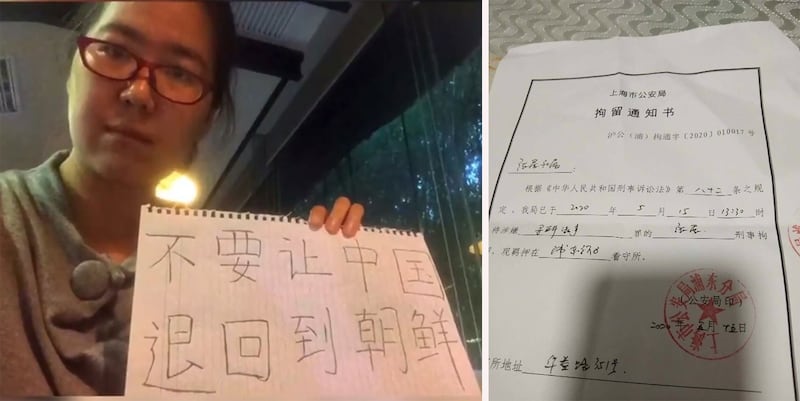 不要让中国
退回到朝鲜
上海市公安局
拘留通知书
沪公(浦)拘通字〔2020〕010017号
根据《中华人民共和国刑事诉讼法》第 八十二 条之规
定,我局已于 2020 年 5 月 15 日 13:30 时
涉嫌 寻衅滋事 罪的 刑事拘
,现羁押在 看守所。
公安局印
2020年五月十五日
所地址